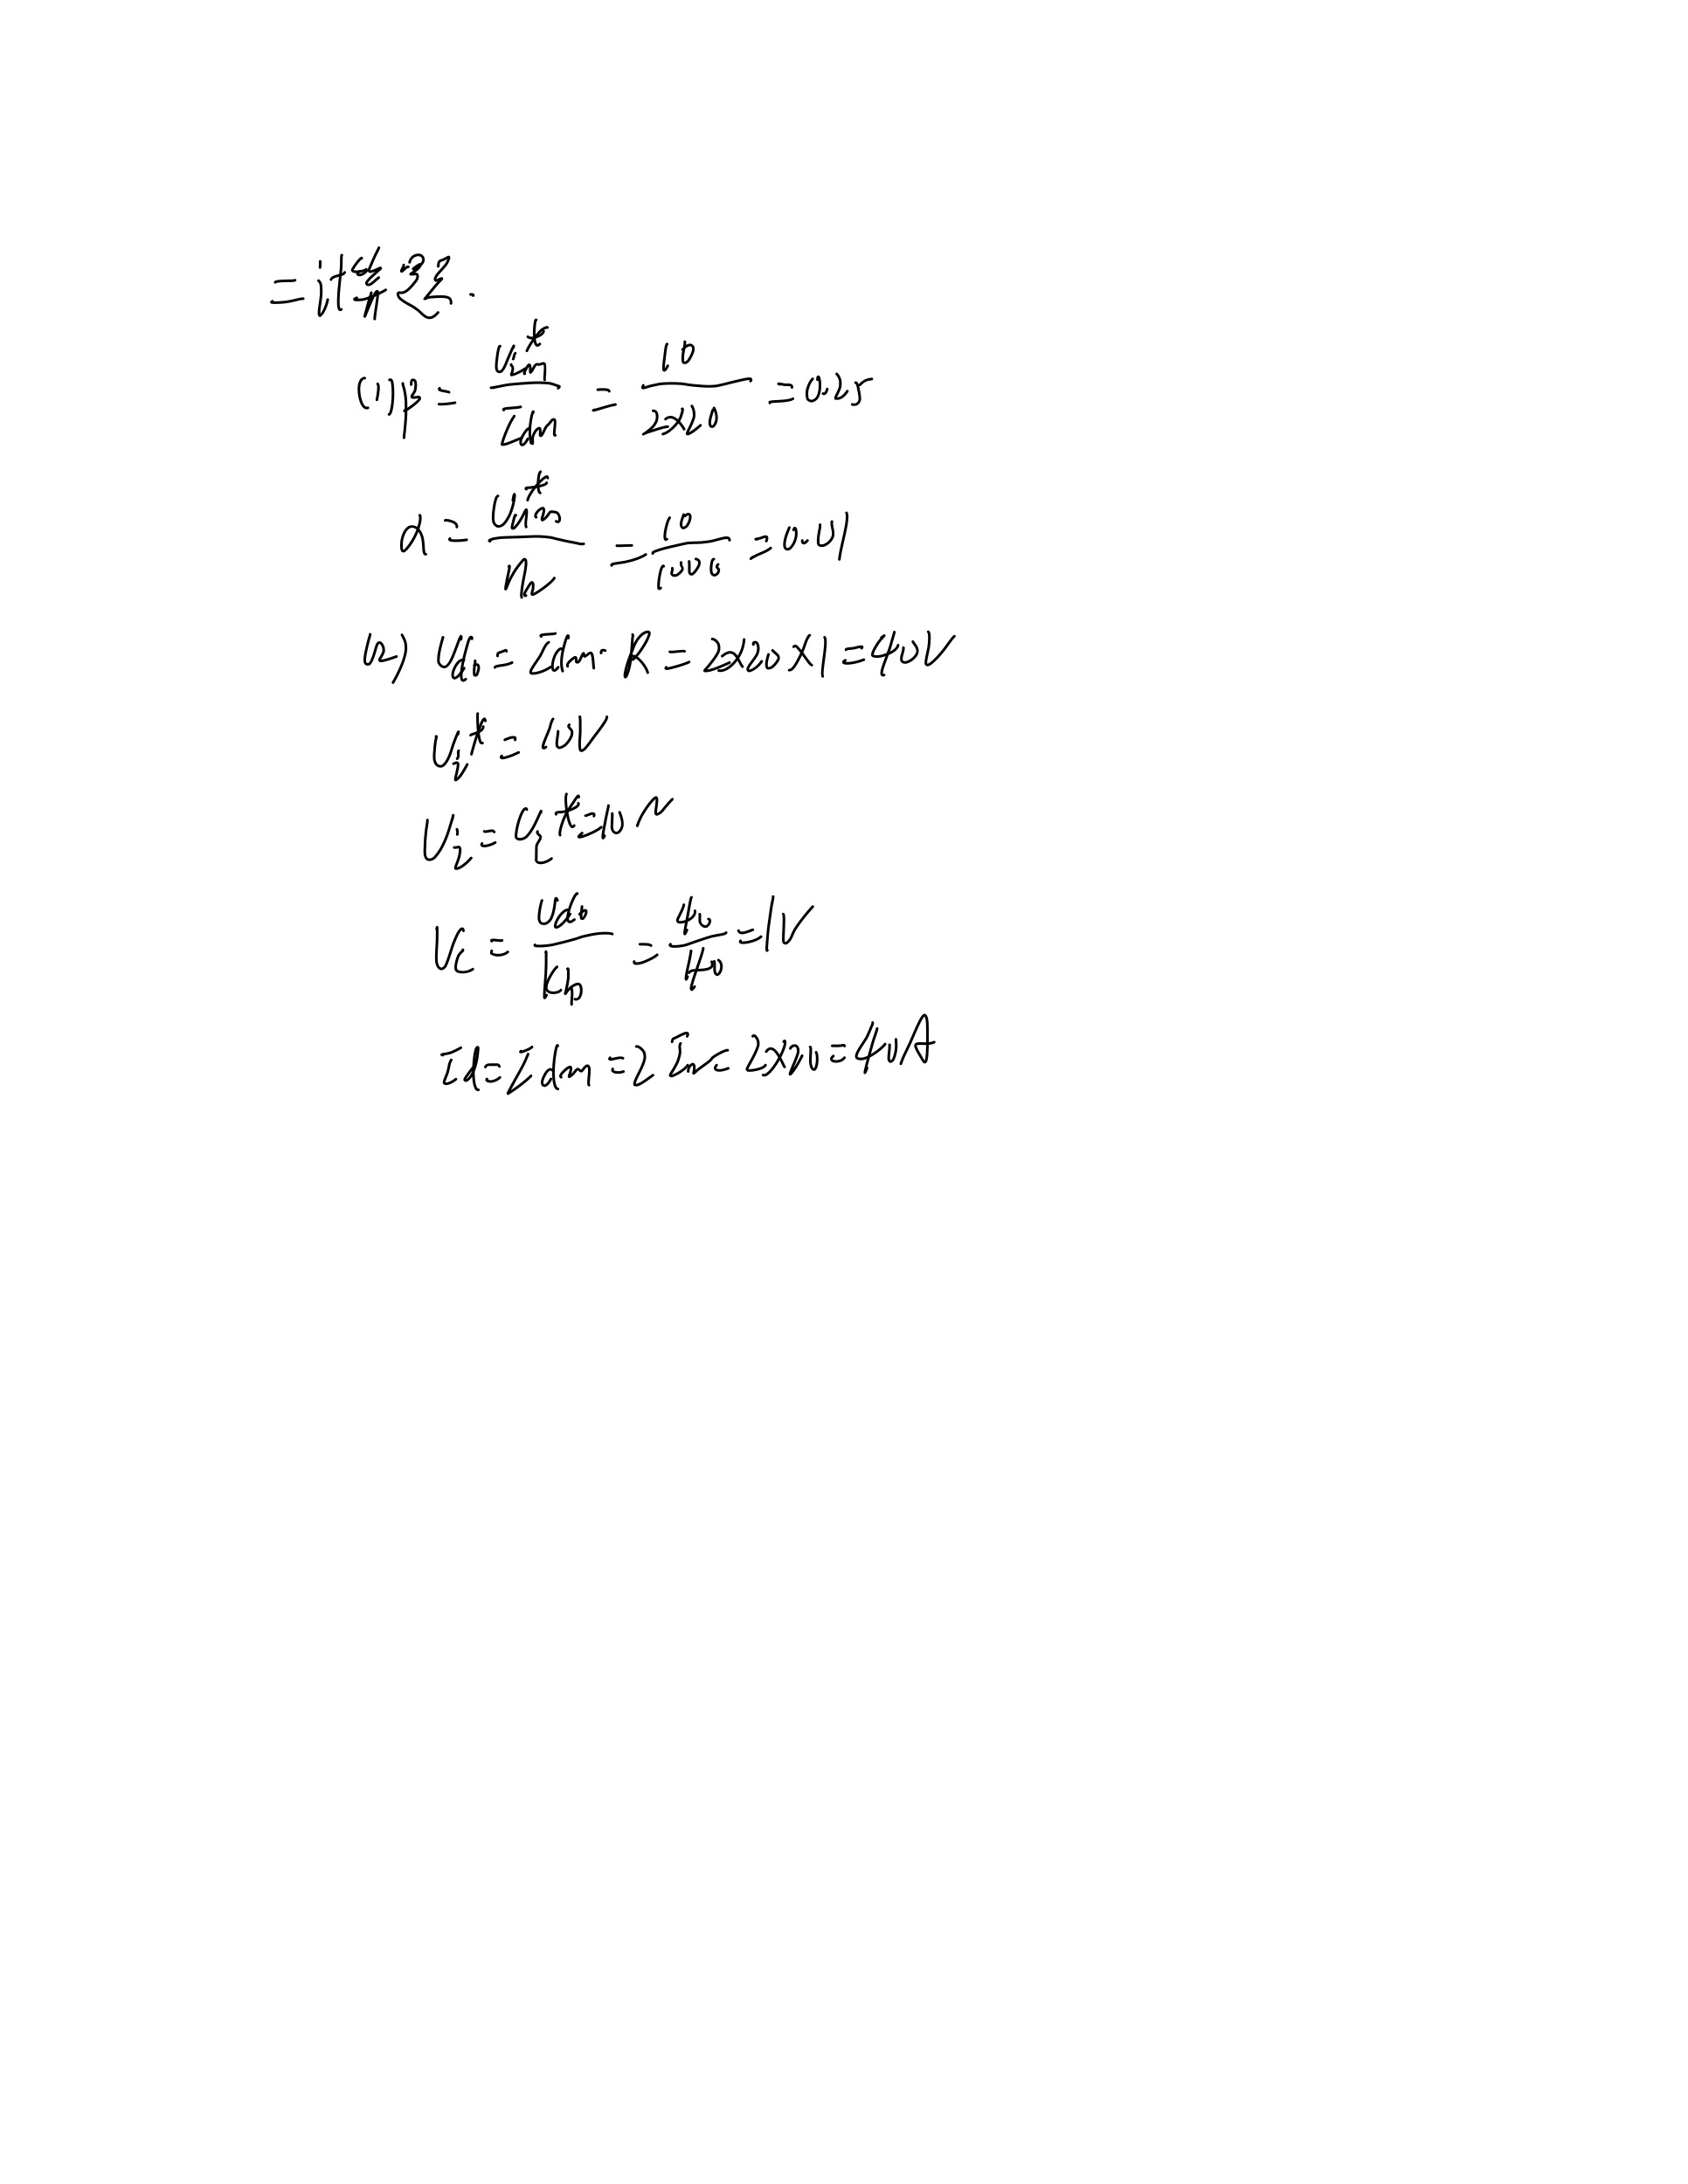 二计算题.
(1) β = U*im / Idm = 10 / 2×20 = 0.25
α = U*nm / nN = 10 / 1000 = 0.01
(2) Ud0 = Idm · R = 2×20×1 = 40V
Ui* = 10V
Ui = Ui* = 10V
Uc = Ud0 / Ks = 40 / 40 = 1V
Id = Idm = 2 IN = 2×20 = 40A